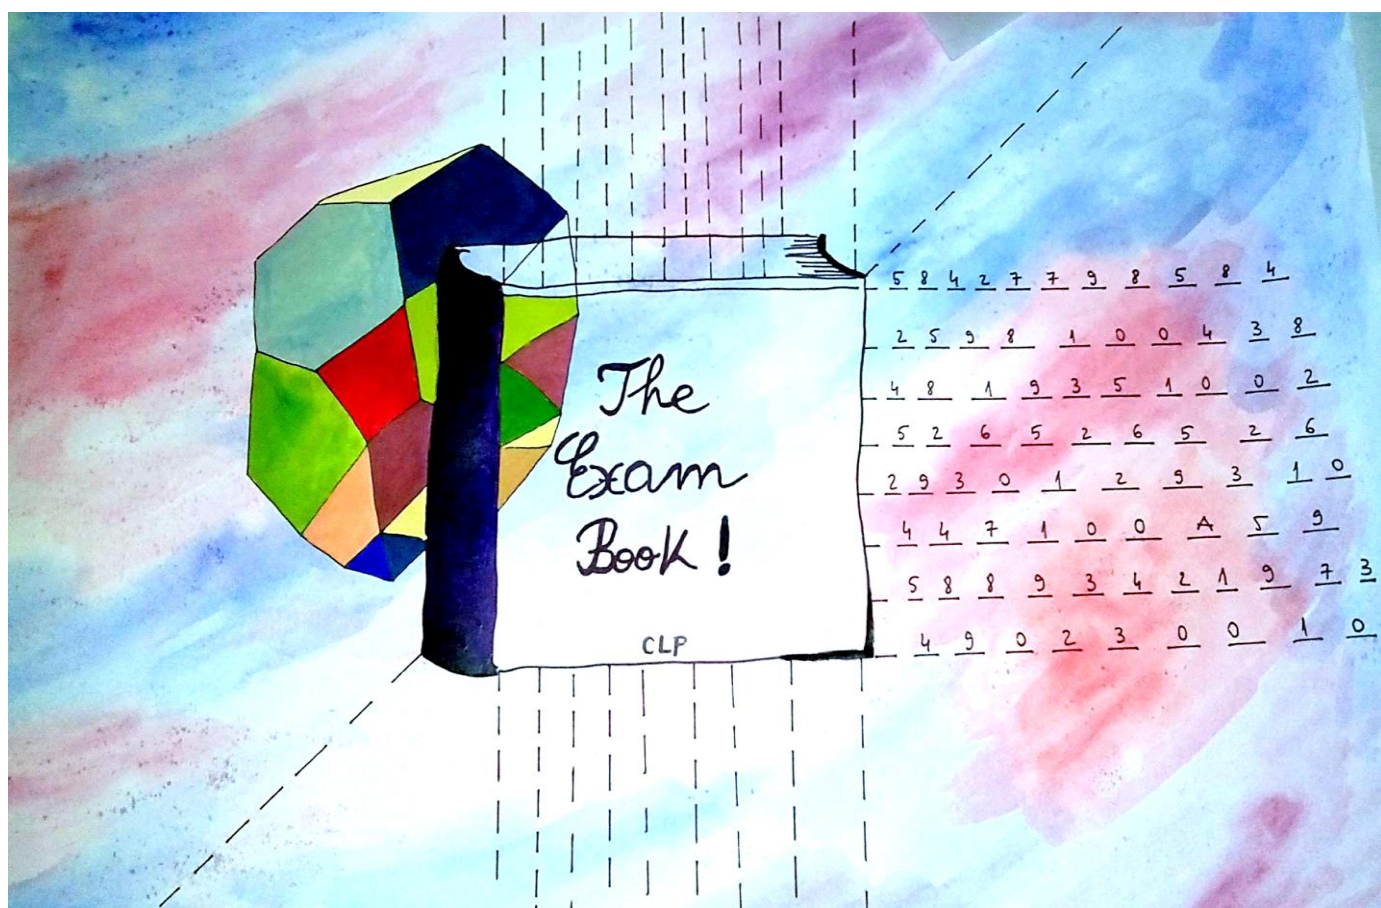 The
Exam
Book!
CLP
5 8 4 2 7 7 9 8 5 8 4
2 5 9 8 1 0 0 4 3 8
4 8 1 9 3 5 1 0 0 2
5 2 6 5 2 6 5 2 6
2 9 3 0 1 2 9 3 1 0
4 4 7 1 0 0 A 5 9
5 8 8 9 3 4 2 1 9 7 3
4 9 0 2 3 0 0 1 0